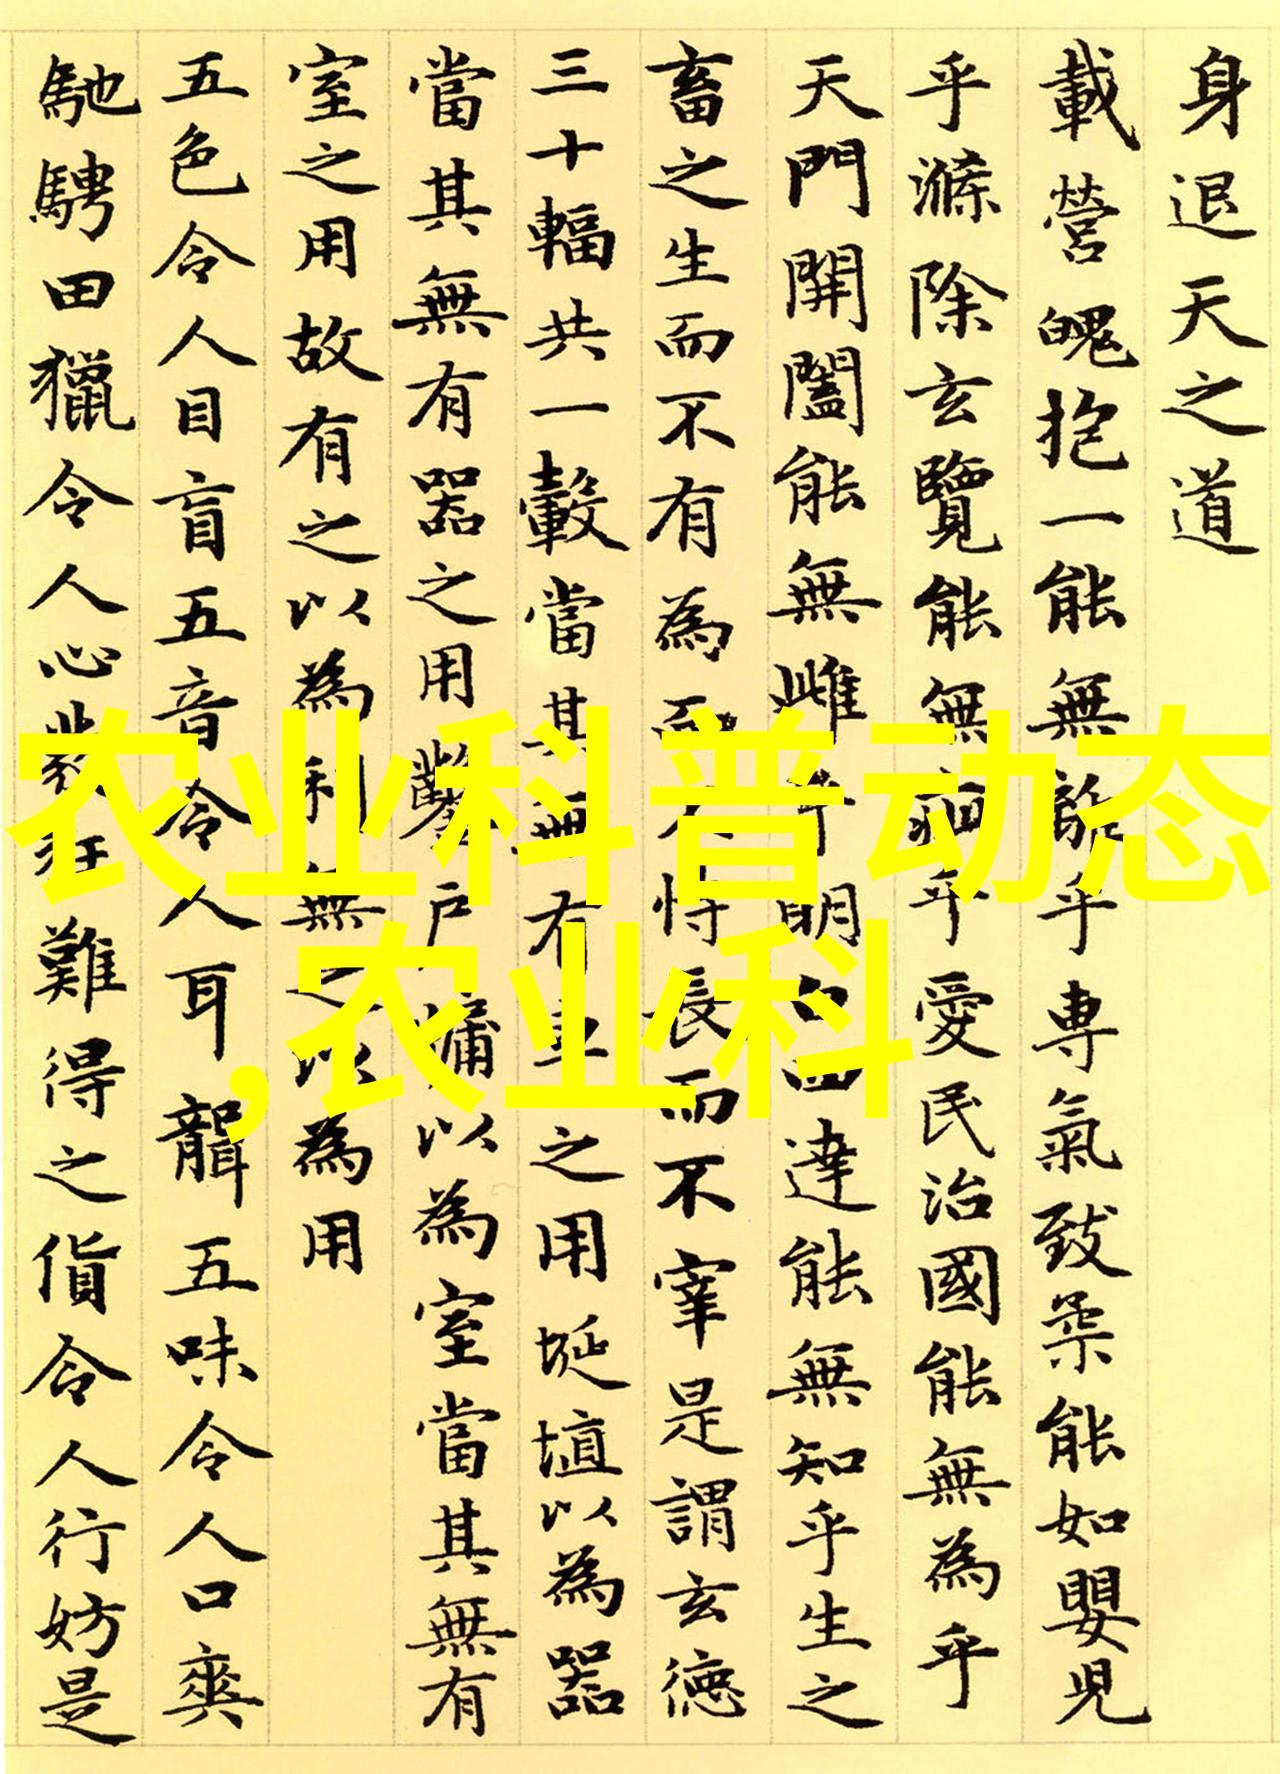 身退天之道
載營魄抱一能無離乎専氣致柔能如嬰児
乎滌除玄覽能無疵乎愛民治國能無為乎
天門開闔能無雌乎明白四達能無知乎生之
畜之生而不有為而不恃長而不宰是謂玄德
三十輻共一轂當其無有車之用埏埴以為器
當其無有器之用鑿戶牖以為室當其無有
室之用故有之以為利無之以為用
五色令人目盲五音令人耳聾五味令人口爽
馳騁田獵令人心發狂難得之貨令人行妨是
农业科普动态
,农业科